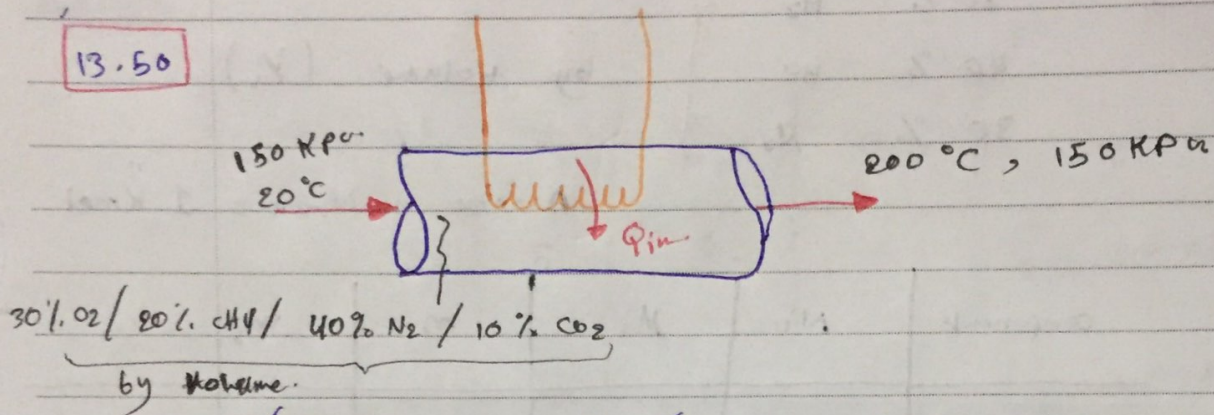 13.50
150 KPa
20°C
200 °C , 150 KPa
Qin
30%. O2 / 20%. CH4 / 40% N2 / 10 % CO2
by Volume.